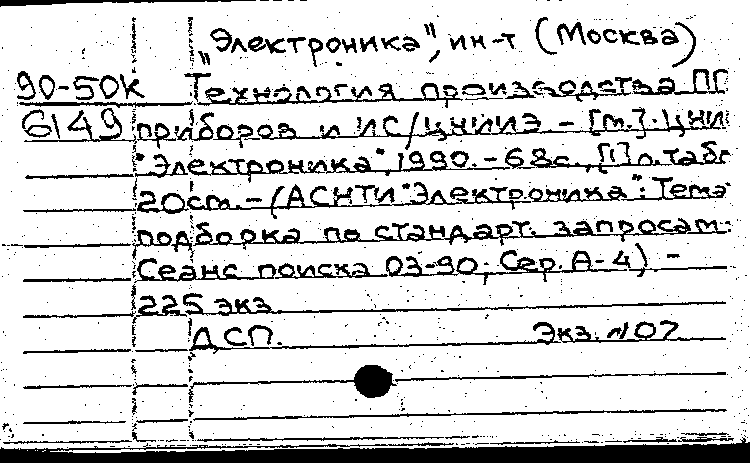 "Электроника", ин-т (Москва)
90-50К Технология производства ПП
6149 приборов и ИС/ЦНИИЭ - [М.]: ЦНИИ
"Электроника", 1990. - 68с., [1] л. табл
20см. - (АСНТИ "Электроника": Тема
подборка по стандарт. запросам:
Сеанс поиска 03-90; Сер. А-4) -
225 экз.
ДСП. Экз. №07